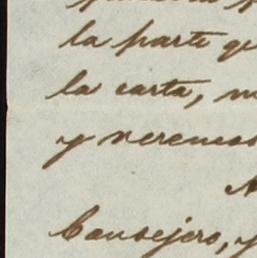 la parte qu
la carta, n
y veremos
A
Consejero, y